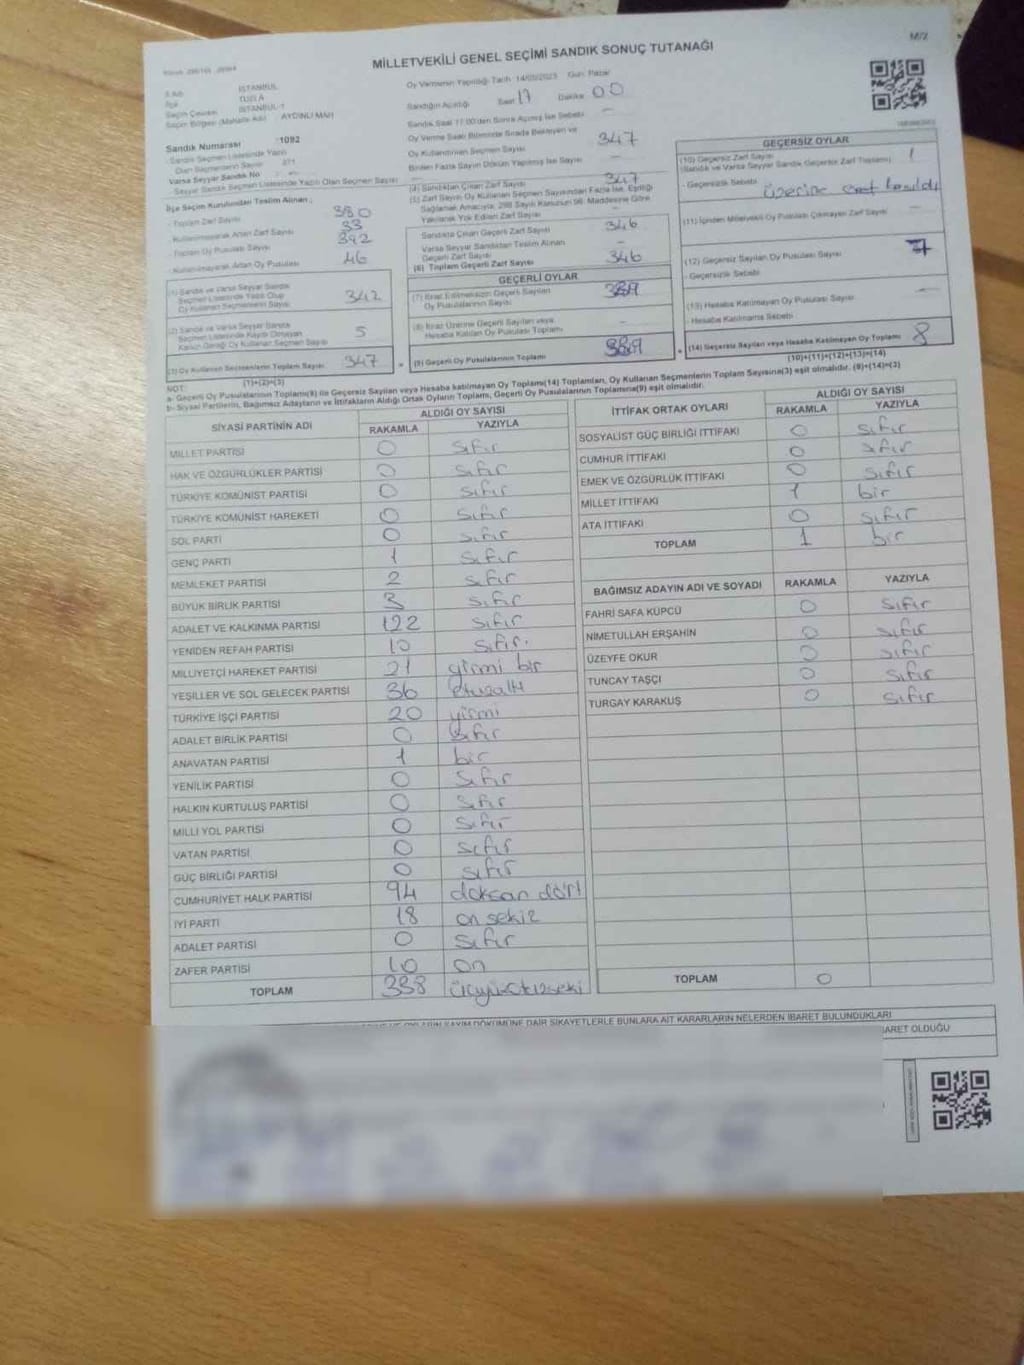 M/2
MİLLETVEKİLİ GENEL SEÇİMİ SANDIK SONUÇ TUTANAĞI
İli Adı İSTANBUL
İlçe TUZLA
Seçim Çevresi İSTANBUL-1
Seçim Bölgesi (Mahalle Adı) AYDINLI MAH
Sandık Numarası :1092
Sandık Seçmen Listesinde Yazılı
Olan Seçmenlerin Sayısı 371
Varsa Seyyar Sandık No
Seyyar Sandık Seçmen Listesinde Yazılı Olan Seçmen Sayısı
İlçe Seçim Kurulundan Teslim Alınan ;
Toplam Zarf Sayısı 380
Kullanılmayarak Artan Zarf Sayısı 33
Toplam Oy Pusulası Sayısı 392
Kullanılmayarak Artan Oy Pusulası 46
(1) Sandık ve Varsa Seyyar Sandık
Seçmen Listesinde Yazılı Olup
Oy Kullanan Seçmenlerin Sayısı 342
(2) Sandık ve Varsa Seyyar Sandık
Seçmen Listesinde Kayıtlı Olmayan
Kanun Gereği Oy Kullanan Seçmen Sayısı 5
(3) Oy Kullanan Seçmenlerin Toplam Sayısı 347
(1)+(2)=(3)
Oy Vermenin Yapıldığı Tarih 14/05/2023 Gün: Pazar
Sandığın Açıldığı Saat 17 Dakika 00
Sandık Saat 17:00'den Sonra Açılmış İse Sebebi –
Oy Verme Saati Bitiminde Sırada Bekleyen ve
Oy Kullandırılan Seçmen Sayısı 347
Birden Fazla Sayım Döküm Yapılmış İse Sayısı –
(4) Sandıktan Çıkan Zarf Sayısı 347
(5) Zarf Sayısı Oy Kullanan Seçmen Sayısından Fazla İse, Eşitliği
Sağlamak Amacıyla, 298 Sayılı Kanunun 98. Maddesine Göre
Yakılarak Yok Edilen Zarf Sayısı
Sandıkta Çıkan Geçerli Zarf Sayısı 346
Varsa Seyyar Sandıktan Teslim Alınan
Geçerli Zarf Sayısı –
(6) Toplam Geçerli Zarf Sayısı 346
GEÇERLİ OYLAR
(7) İtiraz Edilmeksizin Geçerli Sayılan
Oy Pusulalarının Sayısı
(8) İtiraz Üzerine Geçerli Sayılan veya
Hesaba Katılan Oy Pusulası Toplamı –
(9) Geçerli Oy Pusulalarının Toplamı
GEÇERSİZ OYLAR
(10) Geçersiz Zarf Sayısı
(Sandık ve Varsa Seyyar Sandık Geçersiz Zarf Toplamı) 1
- Geçersizlik Sebebi üzerine
(11) İçinden Milletvekili Oy Pusulası Çıkmayan Zarf Sayısı –
(12) Geçersiz Sayılan Oy Pusulası Sayısı 7
- Geçersizlik Sebebi
(13) Hesaba Katılmayan Oy Pusulası Sayısı –
- Hesaba Katılmama Sebebi
(14) Geçersiz Sayılan veya Hesaba Katılmayan Oy Toplamı 8
(10)+(11)+(12)+(13)=(14)
NOT:
a- Geçerli Oy Pusulalarının Toplamı(9) ile Geçersiz Sayılan veya Hesaba katılmayan Oy Toplamı(14) Toplamları, Oy Kullanan Seçmenlerin Toplam Sayısına(3) eşit olmalıdır. (9)+(14)=(3)
b- Siyasi Partilerin, Bağımsız Adayların ve İttifakların Aldığı Ortak Oyların Toplamı, Geçerli Oy Pusulalarının Toplamına(9) eşit olmalıdır.
SİYASİ PARTİNİN ADI ALDIĞI OY SAYISI
RAKAMLA YAZIYLA
MİLLET PARTİSİ 0 sıfır
HAK VE ÖZGÜRLÜKLER PARTİSİ 0 sıfır
TÜRKİYE KOMÜNİST PARTİSİ 0 sıfır
TÜRKİYE KOMÜNİST HAREKETİ 0 sıfır
SOL PARTİ 0 sıfır
GENÇ PARTİ 1 sıfır
MEMLEKET PARTİSİ 2 sıfır
BÜYÜK BİRLİK PARTİSİ 3 sıfır
ADALET VE KALKINMA PARTİSİ 122 sıfır
YENİDEN REFAH PARTİSİ 10 sıfır.
MİLLİYETÇİ HAREKET PARTİSİ 21 yirmi bir
YEŞİLLER VE SOL GELECEK PARTİSİ 36 otuzaltı
TÜRKİYE İŞÇİ PARTİSİ 20 yirmi
ADALET BİRLİK PARTİSİ 0 sıfır
ANAVATAN PARTİSİ 1 bir
YENİLİK PARTİSİ 0 sıfır
HALKIN KURTULUŞ PARTİSİ 0 sıfır
MİLLİ YOL PARTİSİ 0 sıfır
VATAN PARTİSİ 0 sıfır
GÜÇ BİRLİĞİ PARTİSİ 0 sıfır
CUMHURİYET HALK PARTİSİ 94 doksan dört
İYİ PARTİ 18 on sekiz
ADALET PARTİSİ 0 sıfır
ZAFER PARTİSİ 10 on
TOPLAM 338 üçyüzotuzseki
İTTİFAK ORTAK OYLARI ALDIĞI OY SAYISI
RAKAMLA YAZIYLA
SOSYALİST GÜÇ BİRLİĞİ İTTİFAKI 0 sıfır
CUMHUR İTTİFAKI 0 sıfır
EMEK VE ÖZGÜRLÜK İTTİFAKI 0 sıfır
MİLLET İTTİFAKI 1 bir
ATA İTTİFAKI 0 sıfır
TOPLAM 1 bir
BAĞIMSIZ ADAYIN ADI VE SOYADI RAKAMLA YAZIYLA
FAHRİ SAFA KÜPCÜ 0 sıfır
NİMETULLAH ERŞAHİN 0 sıfır
ÜZEYFE OKUR 0 sıfır
TUNCAY TAŞÇI 0 sıfır
TURGAY KARAKUŞ 0 sıfır
TOPLAM 0
SAYIM DÖKÜMÜNE DAİR ŞİKAYETLERLE BUNLARA AİT KARARLARIN NELERDEN İBARET BULUNDUKLARI
İBARET OLDUĞU